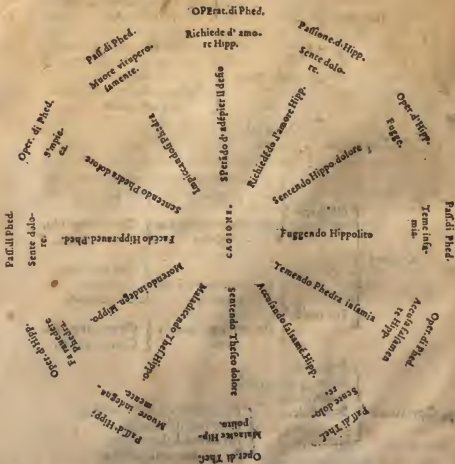 OPErat.di Phed.
Richiede d' amo-
re Hipp.
SPerādo d'adēpier il deſio
Paſſione.d'Hipp.
Sente dolo-
re.
Richiedēdo l'amore Hipp.
Oper.d'Hipp.
Fugge.
Sentendo Hippo dolore
Paſſ.di Phed.
Teme infa-
mia.
Fuggendo Hippolito
Oper.di Phed.
Accuſa falſamen
te Hipp.
Temendo Phedra infamia
Paſſ.di Theſ.
Sente dolo-
re.
Accuſando falſamē.Hipp.
Oper.di Theſ.
Maladice Hip-
polito.
Sentendo Theſeo dolore
Paſſ.d'Hipp.
Muore indegna-
mente.
Maladicendo Theſ Hippo.
Oper.d'Hipp.
Fa rauedere
Phedra.
Morendo indegn. Hippo.
Paſſ.di Phed.
Sente dolo-
re.
Faccēdo Hipp.raued.Phed.
Oper. di Phed.
S'impic-
ca.
Sentendo Phedra dolore
Paſſ.di Phed.
Muore vitupero-
ſamente.
Impiccandoſi Phedra
CAGIONE.